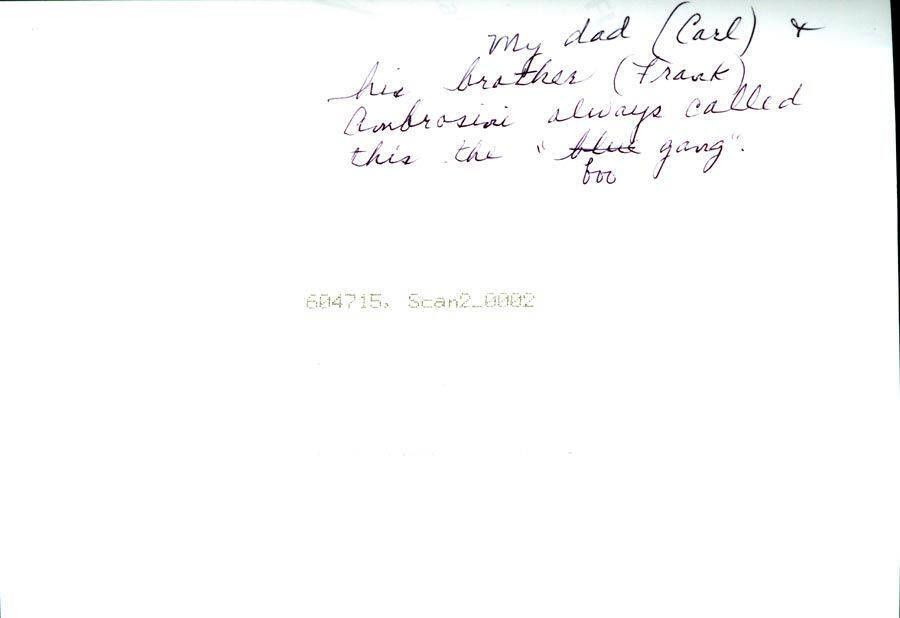 My dad (Carl) &
his brother (Frank)
Ambrosini always called
this the "blue gang".
boo
604715, Scan2_0002